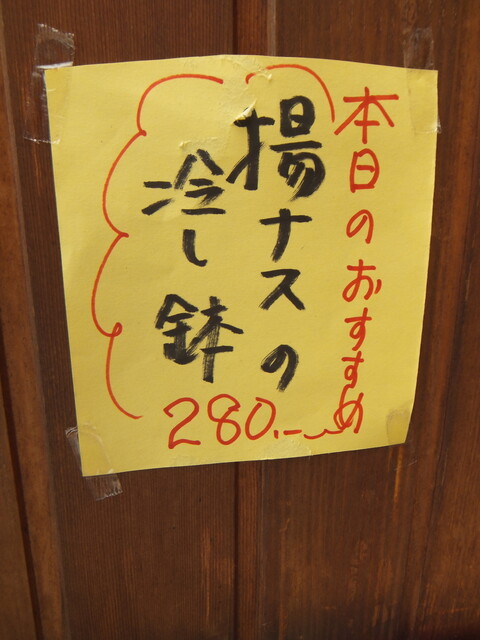 本日のおすすめ
揚ナスの
冷し鉢
280.-